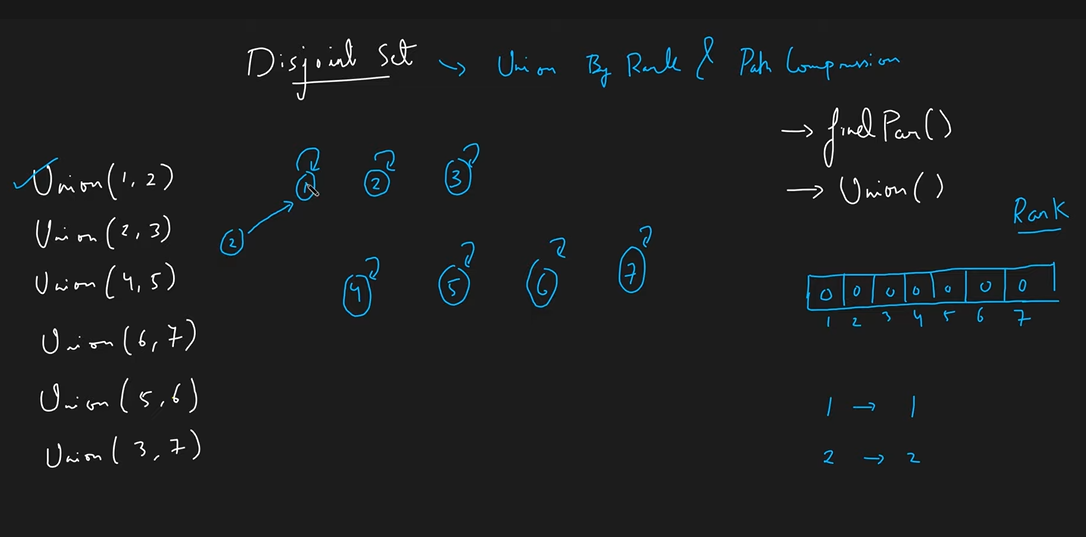 Disjoint Set → Union By Rank & Path Compression
→ findPar()
→ Union()
Union(1, 2)
Union(2, 3)
Union(4, 5)
Union(6, 7)
Union(5, 6)
Union(3, 7)
1 2 3
2
4 5 6 7
Rank
0 0 0 0 0 0 0
1 2 3 4 5 6 7
1 → 1
2 → 2